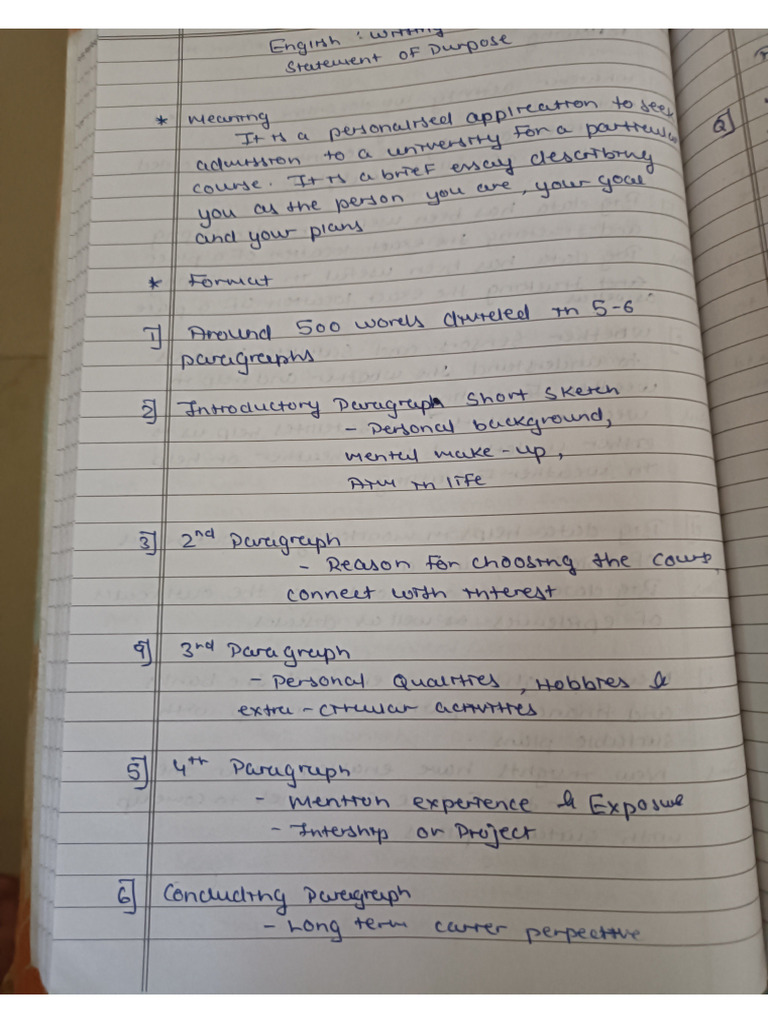 English : Writing
Statement of Purpose
* Meaning
It is a personalised application to seek
admission to a university for a particular
course. It is a brief essay describing
you as the person you are, your goal
and your plans
* Format
1] Around 500 words divided in 5-6
paragraphs
2] Introductory Paragraph Short Sketch
- Personal background,
mental make-up,
Aim in life
3] 2nd Paragraph
- Reason for choosing the course,
connect with interest
4] 3rd Paragraph
- Personal Qualities, Hobbies &
extra-cirular activities
5] 4th Paragraph
- Mention experience & Exposure
- Intership or Project
6] Concluding Paragraph
- Long term carrer perpective
Q]